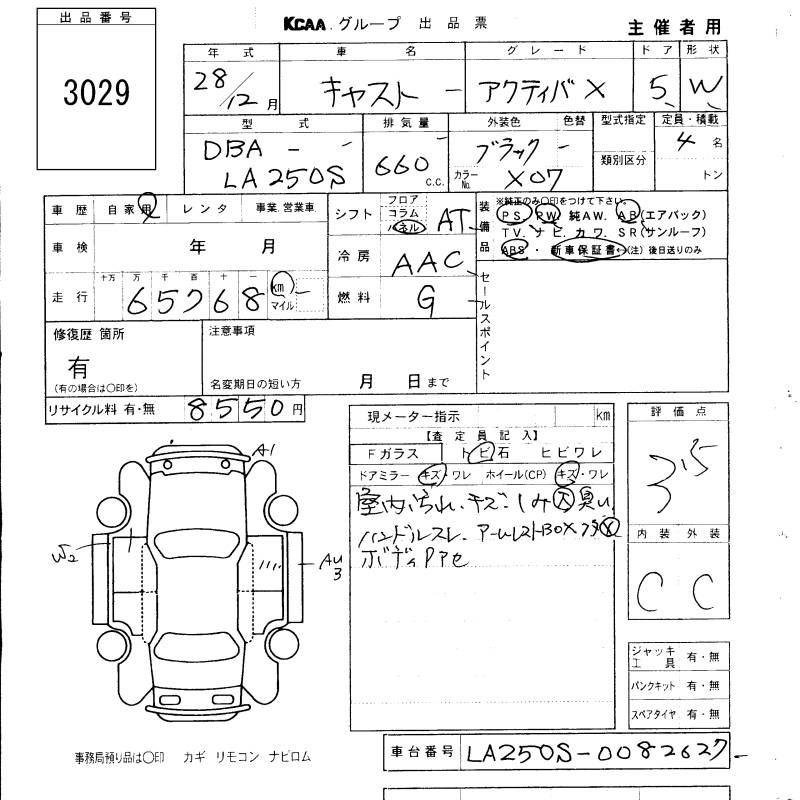 出品番号
3029
KCAA グループ 出品票
主催者用
年式 車名 グレード ドア 形状
28/12月 キャスト - アクティバX 5 W
型式 排気量 外装色 色替 型式指定 定員・積載
DBA - - 660 c.c. ブラック - 4名
LA250S カラーNo. X07 類別区分 トン
車歴 自家用 レンタ 事業.営業車
シフト フロア コラム パネル AT
装備品
※純正のみ〇印をつけて下さい。
PS. PW 純AW. AB(エアバック)
TV. ナビ. カワ. SR(サンルーフ)
ABS・新車保証書↔(注)後日送りのみ
車検 年 月
冷房 AAC
走行 十万 万 千 百 十 一
65768 km マイル
燃料 G
セールスポイント
修復歴 箇所
有
(有の場合は〇印を)
注意事項
名変期日の短い方 月 日まで
リサイクル料 有・無 8550円
現メーター指示 km
【査定員記入】
Fガラス トビ石 ヒビワレ
ドアミラー キズ・ワレ ホイール(CP) キズ・ワレ
室内汚れ.キズ.シミ大臭い.
ハンドルスレ.アームレストBOXフタ
ボディ
評価点
3.5
内装 外装
C C
A1
W2
AU3
ジャッキ工具 有・無
パンクキット 有・無
スペアタイヤ 有・無
事務局預り品は〇印 カギ リモコン ナビロム
車台番号 LA250S-0082627